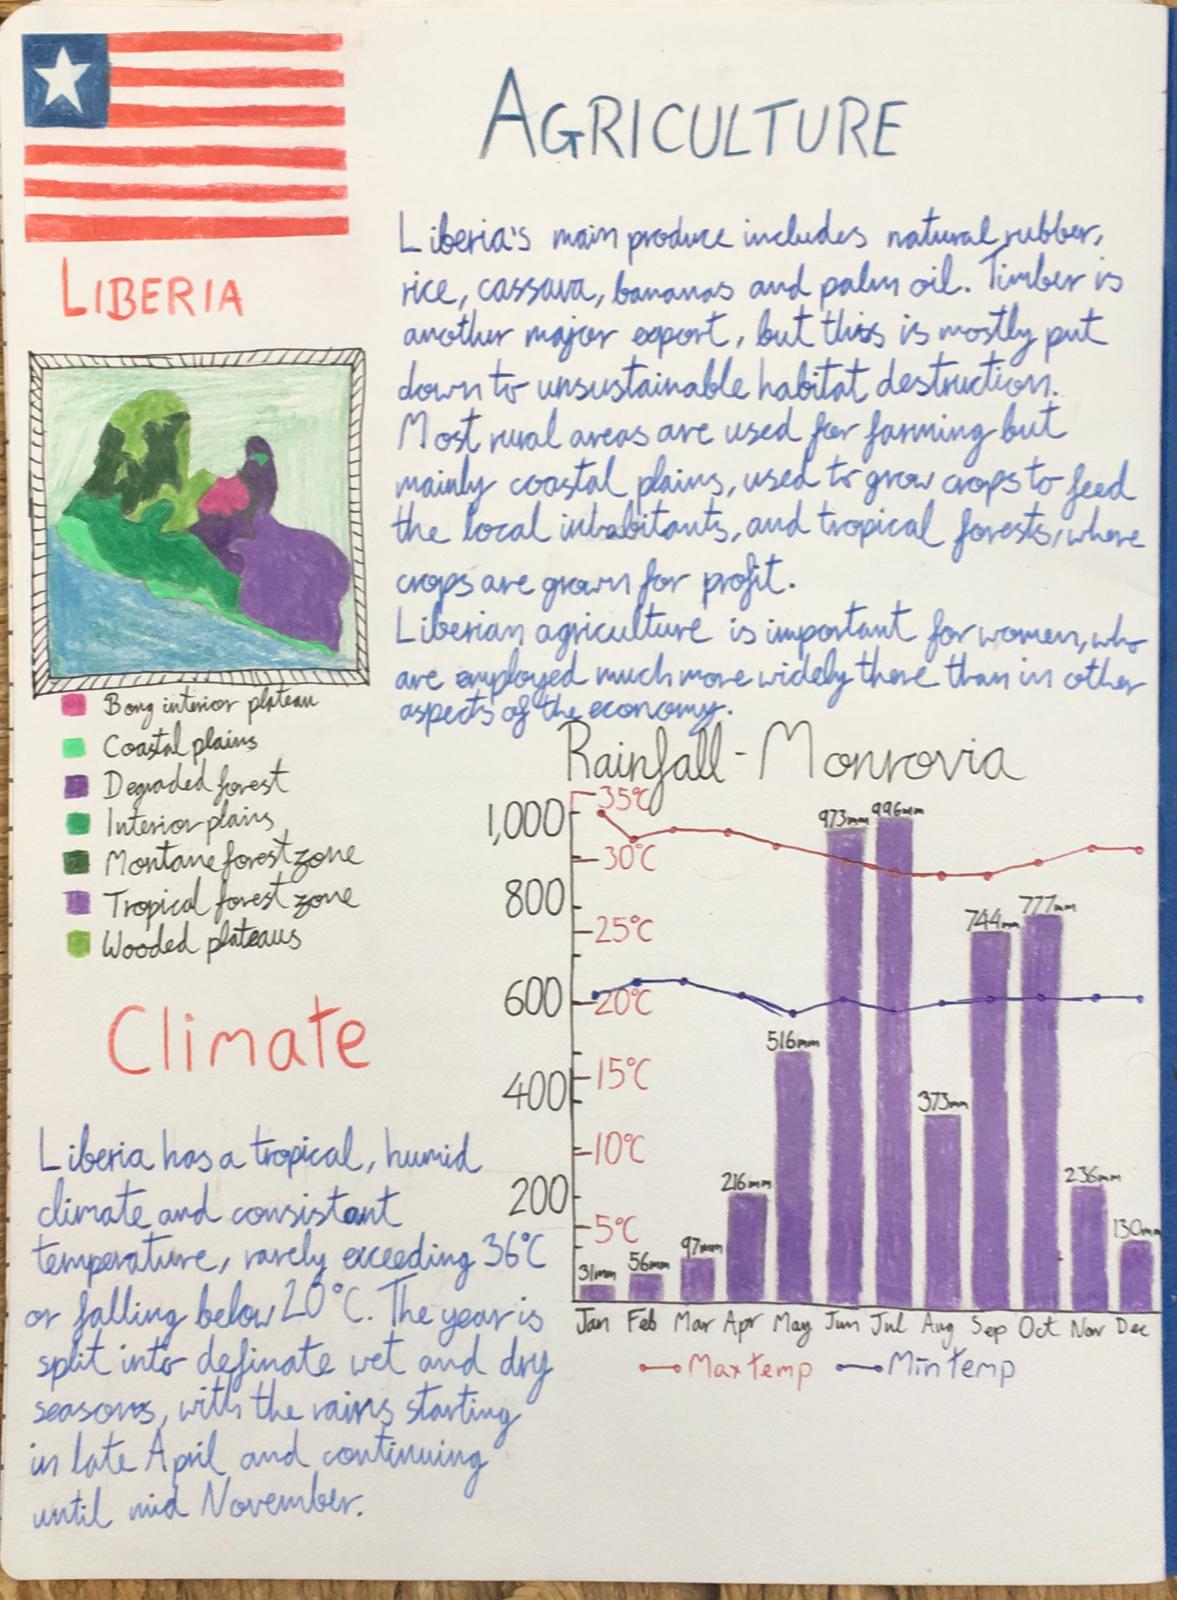 LIBERIA
AGRICULTURE
Liberia's main produce includes natural rubber,
rice, cassava, bananas and palm oil. Timber is
another major export, but this is mostly put
down to unsustainable habitat destruction.
Most rural areas are used for farming but
mainly coastal plains, used to grow crops to feed
the local inhabitants, and tropical forests, where
crops are grown for profit.
Liberian agriculture is important for women, who
are employed much more widely there than in other
aspects of the economy.
Bong interior plateau
Coastal plains
Degraded forest
Interior plains
Montane forest zone
Tropical forest zone
Wooded plateaus
Climate
Liberia has a tropical, humid
climate and consistant
temperature, rarely exceeding 36°C
or falling below 20°C. The year is
split into definate wet and dry
seasons, with the rains starting
in late April and continuing
until mid November.
Rainfall - Monrovia
1,000
800
600
400
200
35°C
30°C
25°C
20°C
15°C
10°C
5°C
31mm
56mm
97mm
216mm
516mm
973mm
996mm
373mm
744mm
777mm
236mm
130mm
Jan Feb Mar Apr May Jun Jul Aug Sep Oct Nov Dec
Max temp Min temp